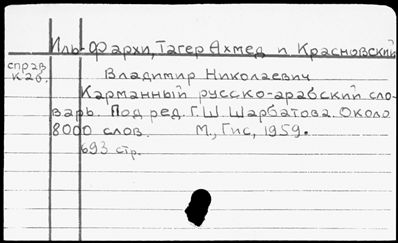 Иль-Фархи, Тагер Ахмед и Красновский
справ
к 26.
Владимир Николаевич
Карманный русско-арабский сло-
варь. Под ред. Г.Ш. Шарбатова. Около
8000 слов. М., Гис, 1959.
693 стр.